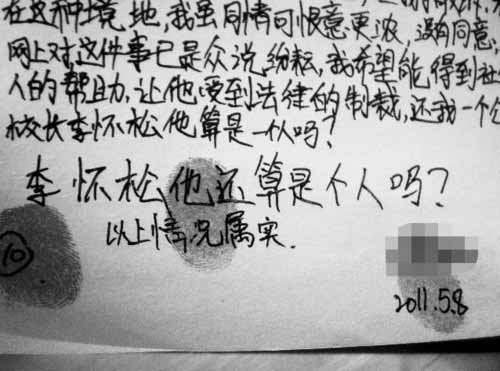 在这种境地,我虽同情可恨意更浓,没有同意,
网上对这件事已是众说纷耘,我希望能得到社
人的帮助,让他受到法律的制裁,还我一个公
校长李怀松他算是一个人吗?
李怀松他还算是个人吗?
以上情况属实.
⑩
2011.5.8